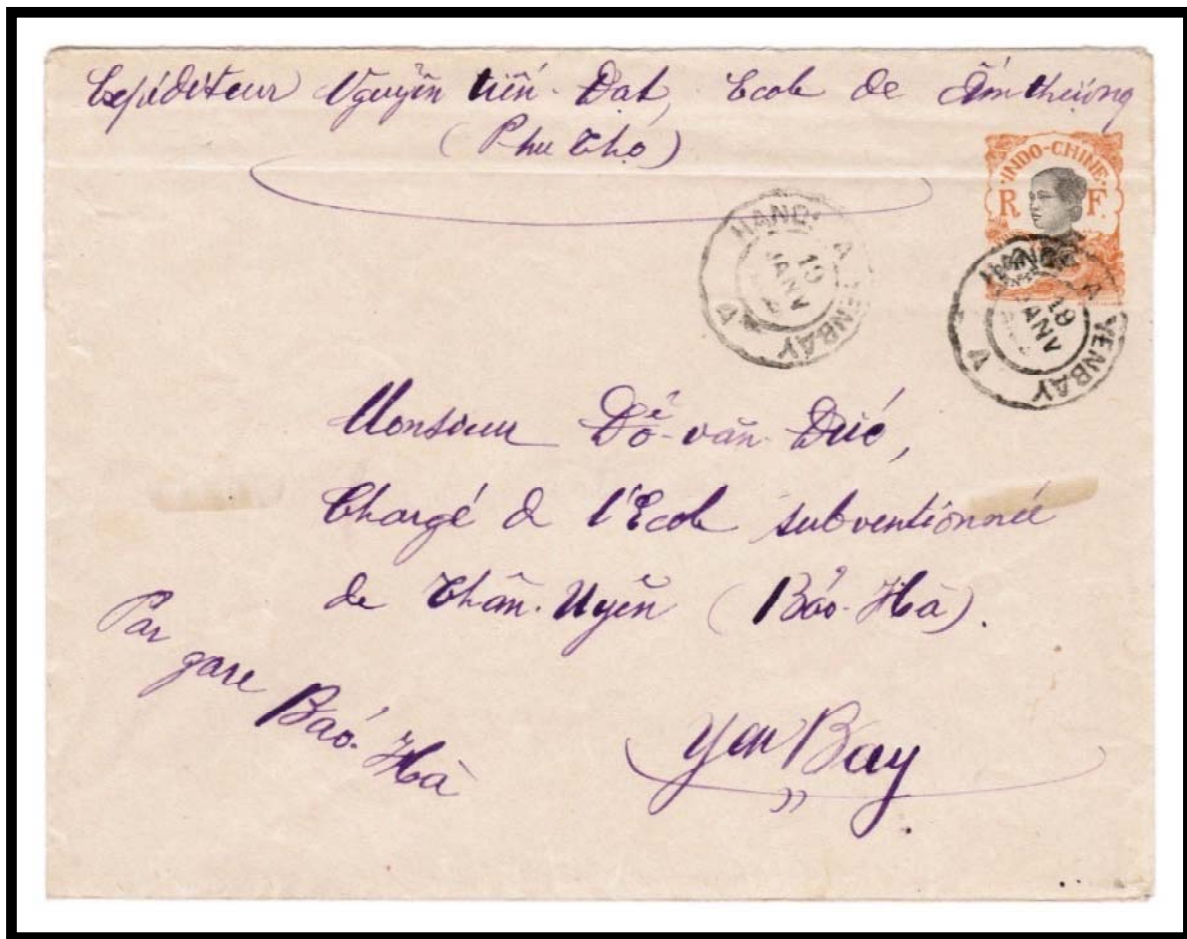 Expéditeur Nguyễn tiến-Đạt, Ecole de Ấm thượng
(Phu Thọ)
INDO-CHINE
R F.
HANOI A YENBAY
19
JANV
A
HANOI A YENBAY
19
JANV
A
Monsieur Đỗ-văn-Đức,
Chargé de l'Ecole subventionnée
de Thân-Uyên (Bảo-Hà).
Par gare Bảo-Hà
Yen Bay